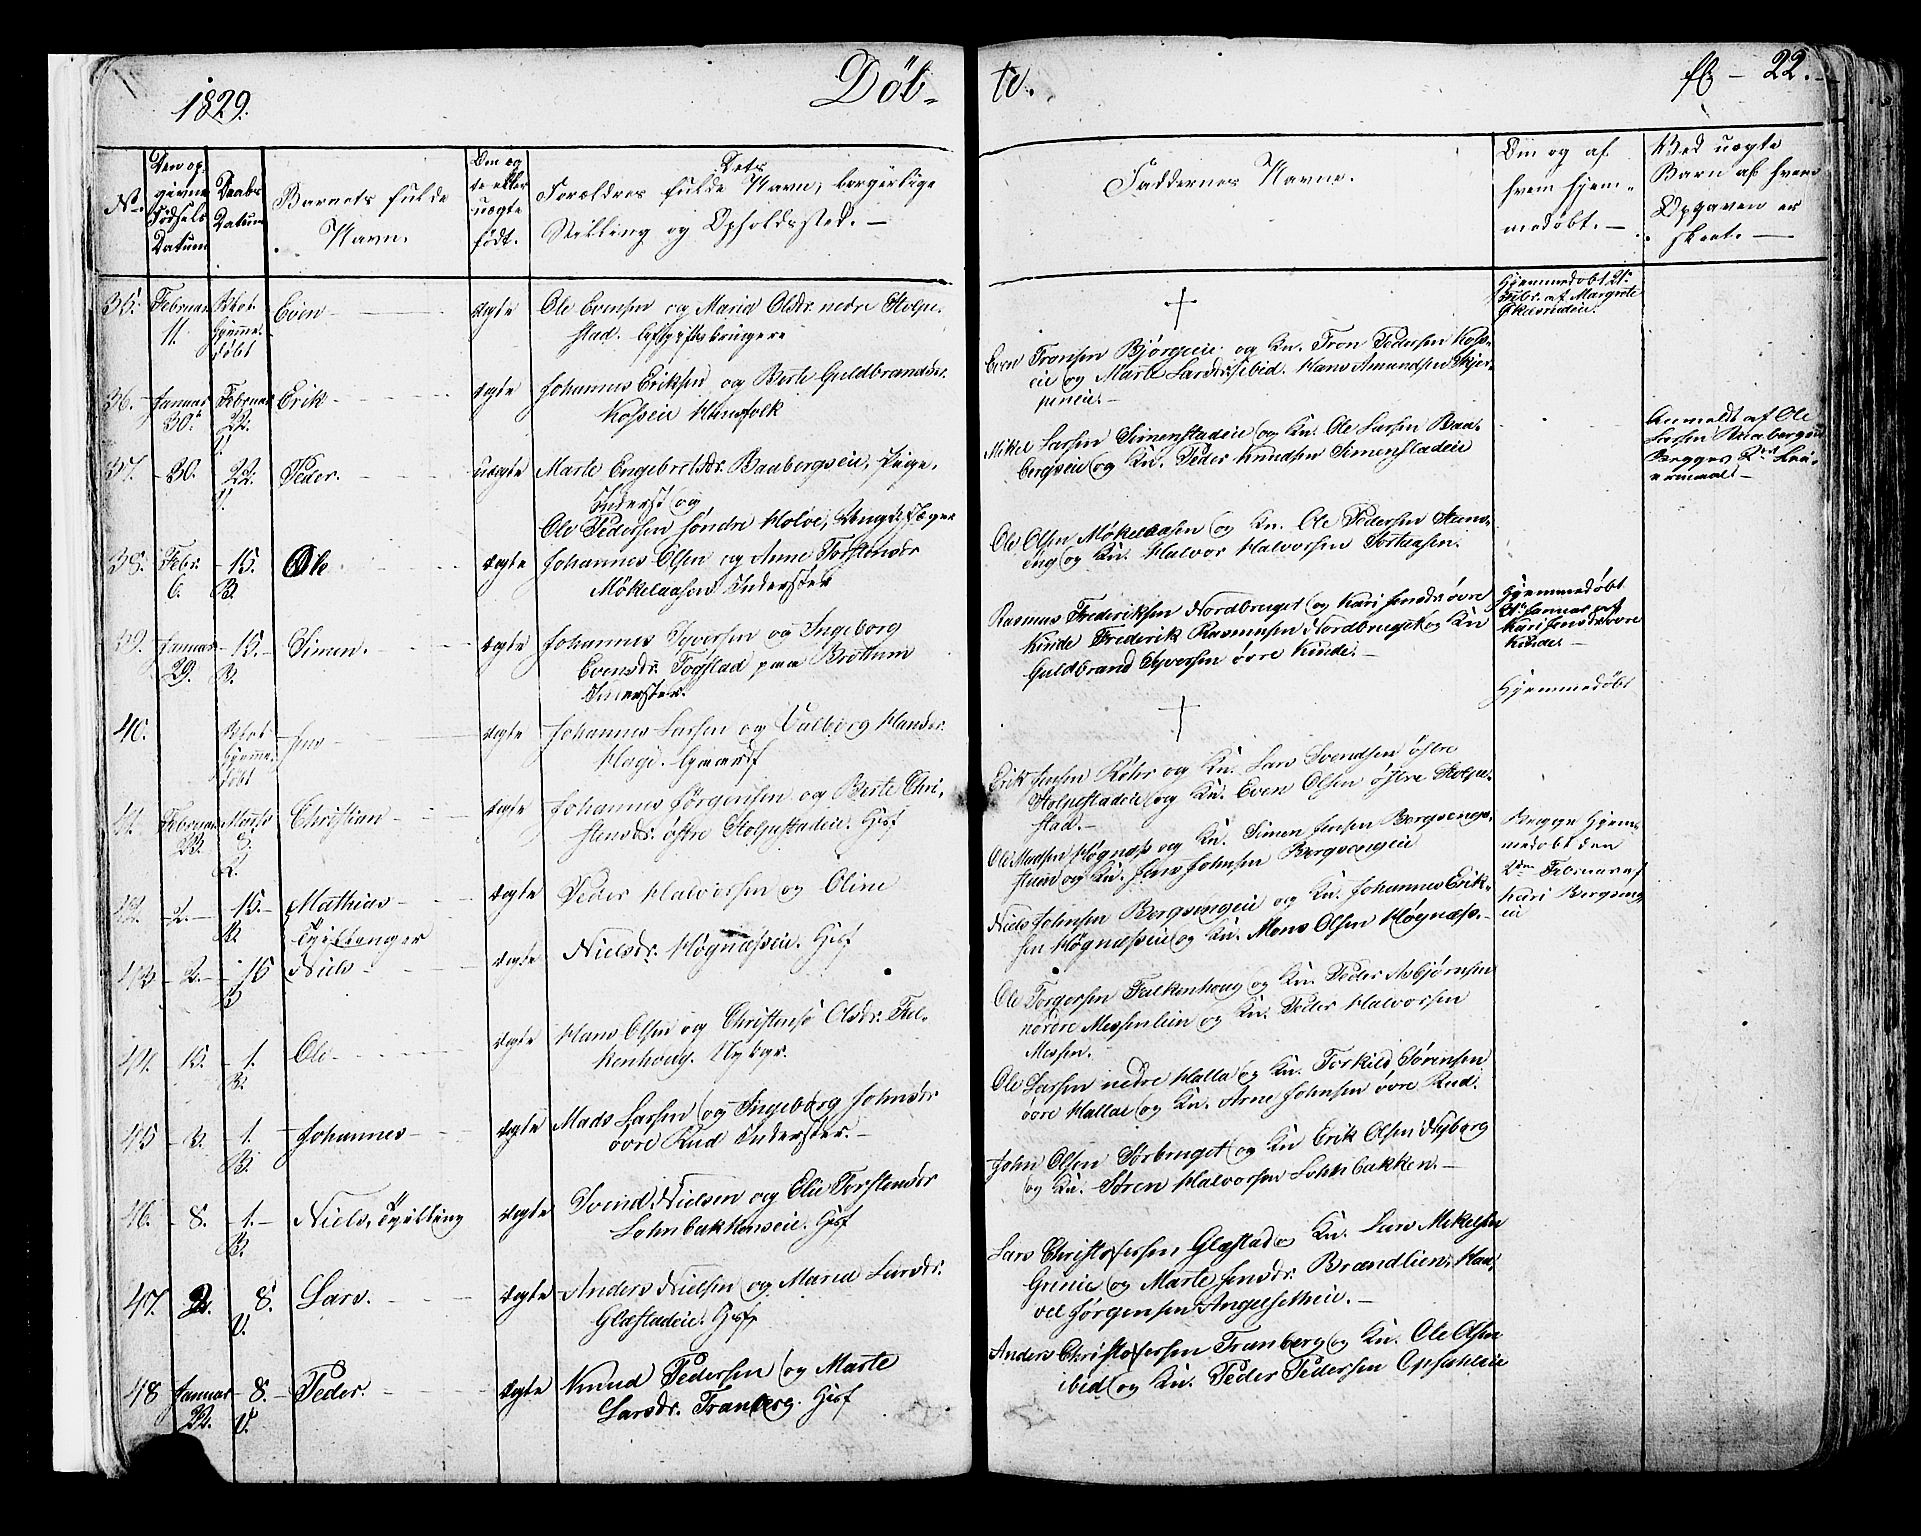 1829.
Döb-
te.
22.
No.
Den op-
givne
Födsels
Datum
Daabs
Datum
Barnets fulde
Navn.
Om æg
te eller
uægte
födt.
Dets
Forældres fulde Navn, borgerlige
Stilling og Opholdssted. —
Faddernes Navne.
Om og af
hvem hjem-
medöbt. —
Ved uægte
Barn af hvem
Opgaven er
skeet. —
35. Februar
11.
hjemme-
döbt
Even
ægte
Ole Evensen og Maria Olsdr. nedre Stolpe-
stad.
†
Hjemmedöbt
af Margrete
36. Januar
30.
Februar
22.
V.
Erik
ægte
Johannes Eriksen og Berte Guldbrandsdr.
Huusfolk
Even Fronsen og Kn. Fron Pedersen
og Marte Larsdr. ibid. Hans Amundsen
37. 30. 22.
V.
Peder.
uægte
Marte Engebretsdr. Baabergseie, Pige,
Inderst og
Ole Pedersen söndre Holve,
Mikel Larsen Simenstadeie og Kn. Ole Larsen Baa-
bergseie og Kn. Peder Knudsen Simenstadeie
Anmeldt af Ole
Larsen
Begges
38. Febr.
6.
15.
B.
Ole
ægte
Johannes Olsen og Anne Torstensdr
Mökelaasen Inderster
Ole Olsen Mökelaasen og Kn. Ole Pedersen
og Kn. Halvor Halvorsen
39. Januar
29.
15.
B.
Simen.
ægte
Johannes Syversen og Ingeborg
Evensdr. Fogstad paa Bröttum
Inderster.
Rasmus Frederiksen Nordbruget og Kari Jensdr. övre
Kinde Frederik Rasmusen Nordbruget og Kn
Guldbrand Syversen övre Kinde. —
Hjemmedöbt
Januar af
Kari Jensdr. övre
Kinde. —
40.
hjemme-
döbt
Jens
ægte
Johannes Larsen og Valborg Hansdr.
Hage. Gaardf
†
Hjemmedöbt
41. Februar
23.
Marts
8.
Christian
ægte
Johannes Jörgensen og Berte Chri-
stensdr. östre Stolpestadeie. Husf
Erik Jensen Röhr og Kn. Lars Svendsen östre
Stolpestadeie og Kn. Even Olsen östre Stolpe-
stad. —
42. 2. 15.
B.
Mathias
Tvillinger
ægte
Peder Halvorsen og Oline
Ole Madsen Högnæss og Kn. Simen Jensen Bergsengs-
og Kn. Jens Johnsen Bergsengeie
Begge hjem-
medöbt den
2den Februar af
Kari Bergseng-
eie
43 2. 15
B
Niels
ægte
Nielsdr. Högnæsseie. Husf
Niels Johnsen Bergsengeie og Kn. Johannes Erik-
sen Högnæsseie og Kn. Mons Olsen Högnæss. —
44. 15. 1.
B.
Ole
ægte
Hans Olsen og Christense Olsdr. Fal-
kenhoug.
Ole Torgersen Falkenhoug og Kn. Peder Asbjörnsen
nordre Messenlien og Kn. Peder Halvorsen
Messen.
45 3. 1.
B.
Johannes
ægte
Mads Larsen og Ingeborg Johnsdr
övre Rud Inderster. —
Ole Larsen nedre Halla og Kn. Torkild Sörensen
övre Hallae og Kn. Arne Johnsen övre Rud.
46. 8. 1.
B.
Niels, Tvilling
ægte
Svend Nielsen og Elie Torstensdr
Husf
John Olsen Sörbruget og Kn Erik Olsen Nyborg
og Kn. Sören Halvorsen
47. 2. 8.
V.
Lars.
ægte
Anders Nielsen og Maria Larsdr.
Glæstadeie. Husf
Lars Christofersen Glæstad og Kn. Lars Mikelsen
Grinie og Marte Jensdr. Brændlien. Haa-
vel Jörgensen Angelsetheie. —
48 Januar
22.
8.
V.
Peder.
ægte
Knud Pedersen og Marte
Larsdr. Franberg. Husf
Anders Christofersen Franberg og Kn. Ole Olsen
ibid og Kn. Peder Pedersen Opsahleie